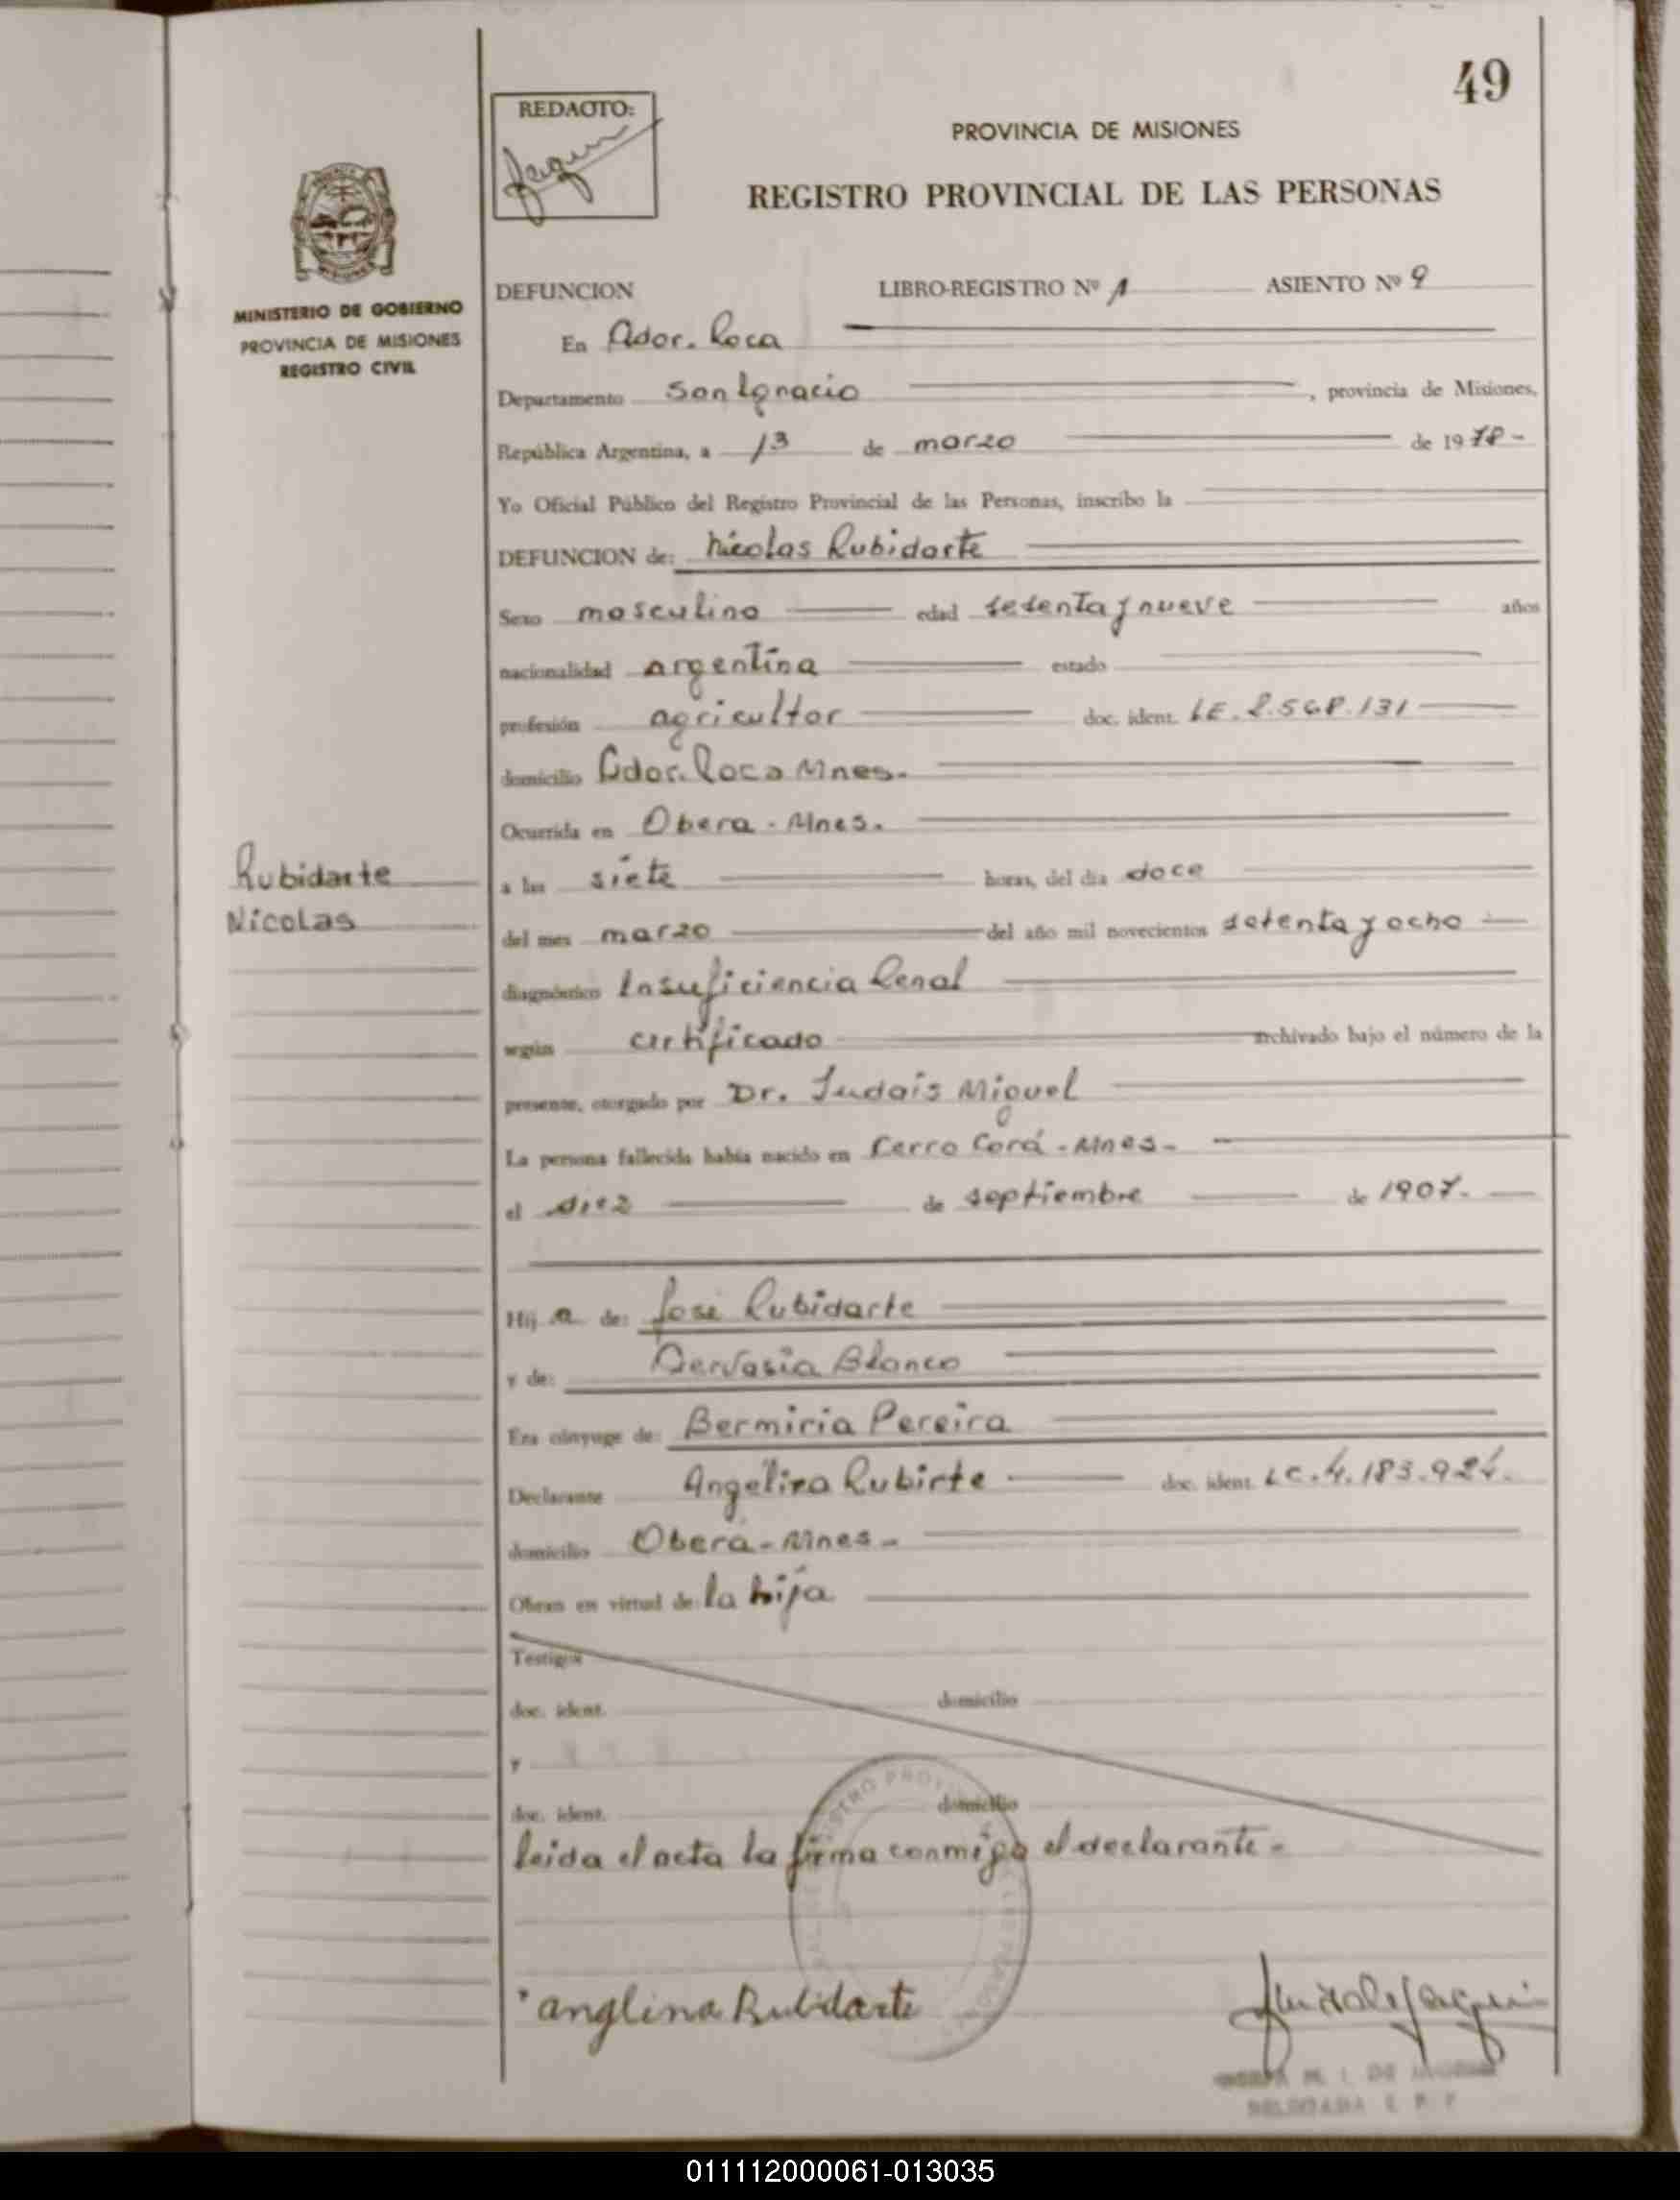 49
REDACTO:
PROVINCIA DE MISIONES
REGISTRO PROVINCIAL DE LAS PERSONAS
MINISTERIO DE GOBIERNO
PROVINCIA DE MISIONES
REGISTRO CIVIL
DEFUNCION LIBRO-REGISTRO Nº 1 ASIENTO Nº 9
En Gdor. Roca
Departamento San Ignacio, provincia de Misiones,
República Argentina, a 13 de marzo de 1978-
Yo Oficial Público del Registro Provincial de las Personas, inscribo la
DEFUNCION de: Nicolas Rubidarte
Sexo masculino edad setenta y nueve años
nacionalidad argentina estado
profesión agricultor doc. ident. LE. 2.568.131
domicilio Gdor. Roca Mnes.
Ocurrida en Obera - Mnes.
Rubidarte
Nicolas
a las siete horas, del día doce
del mes marzo del año mil novecientos setenta y ocho
diagnóstico Insuficiencia Renal
según certificado archivado bajo el número de la
presente, otorgado por Dr. Judais Miguel
La persona fallecida había nacido en Cerro Corá - Mnes-
el diez de septiembre de 1907.
Hij a de: José Rubidarte
y de: Gervasia Blanco
Era cónyuge de: Bermiria Pereira
Declarante Angélina Rubirte doc. ident. LC. 4.183.924.
domicilio Oberá - Mnes -
Obran en virtud de: la hija
Testigos
doc. ident. domicilio
y
doc. ident. domicilio
leida el acta la firma conmigo el declarante -
anglina Rubidarte
011112000061-013035